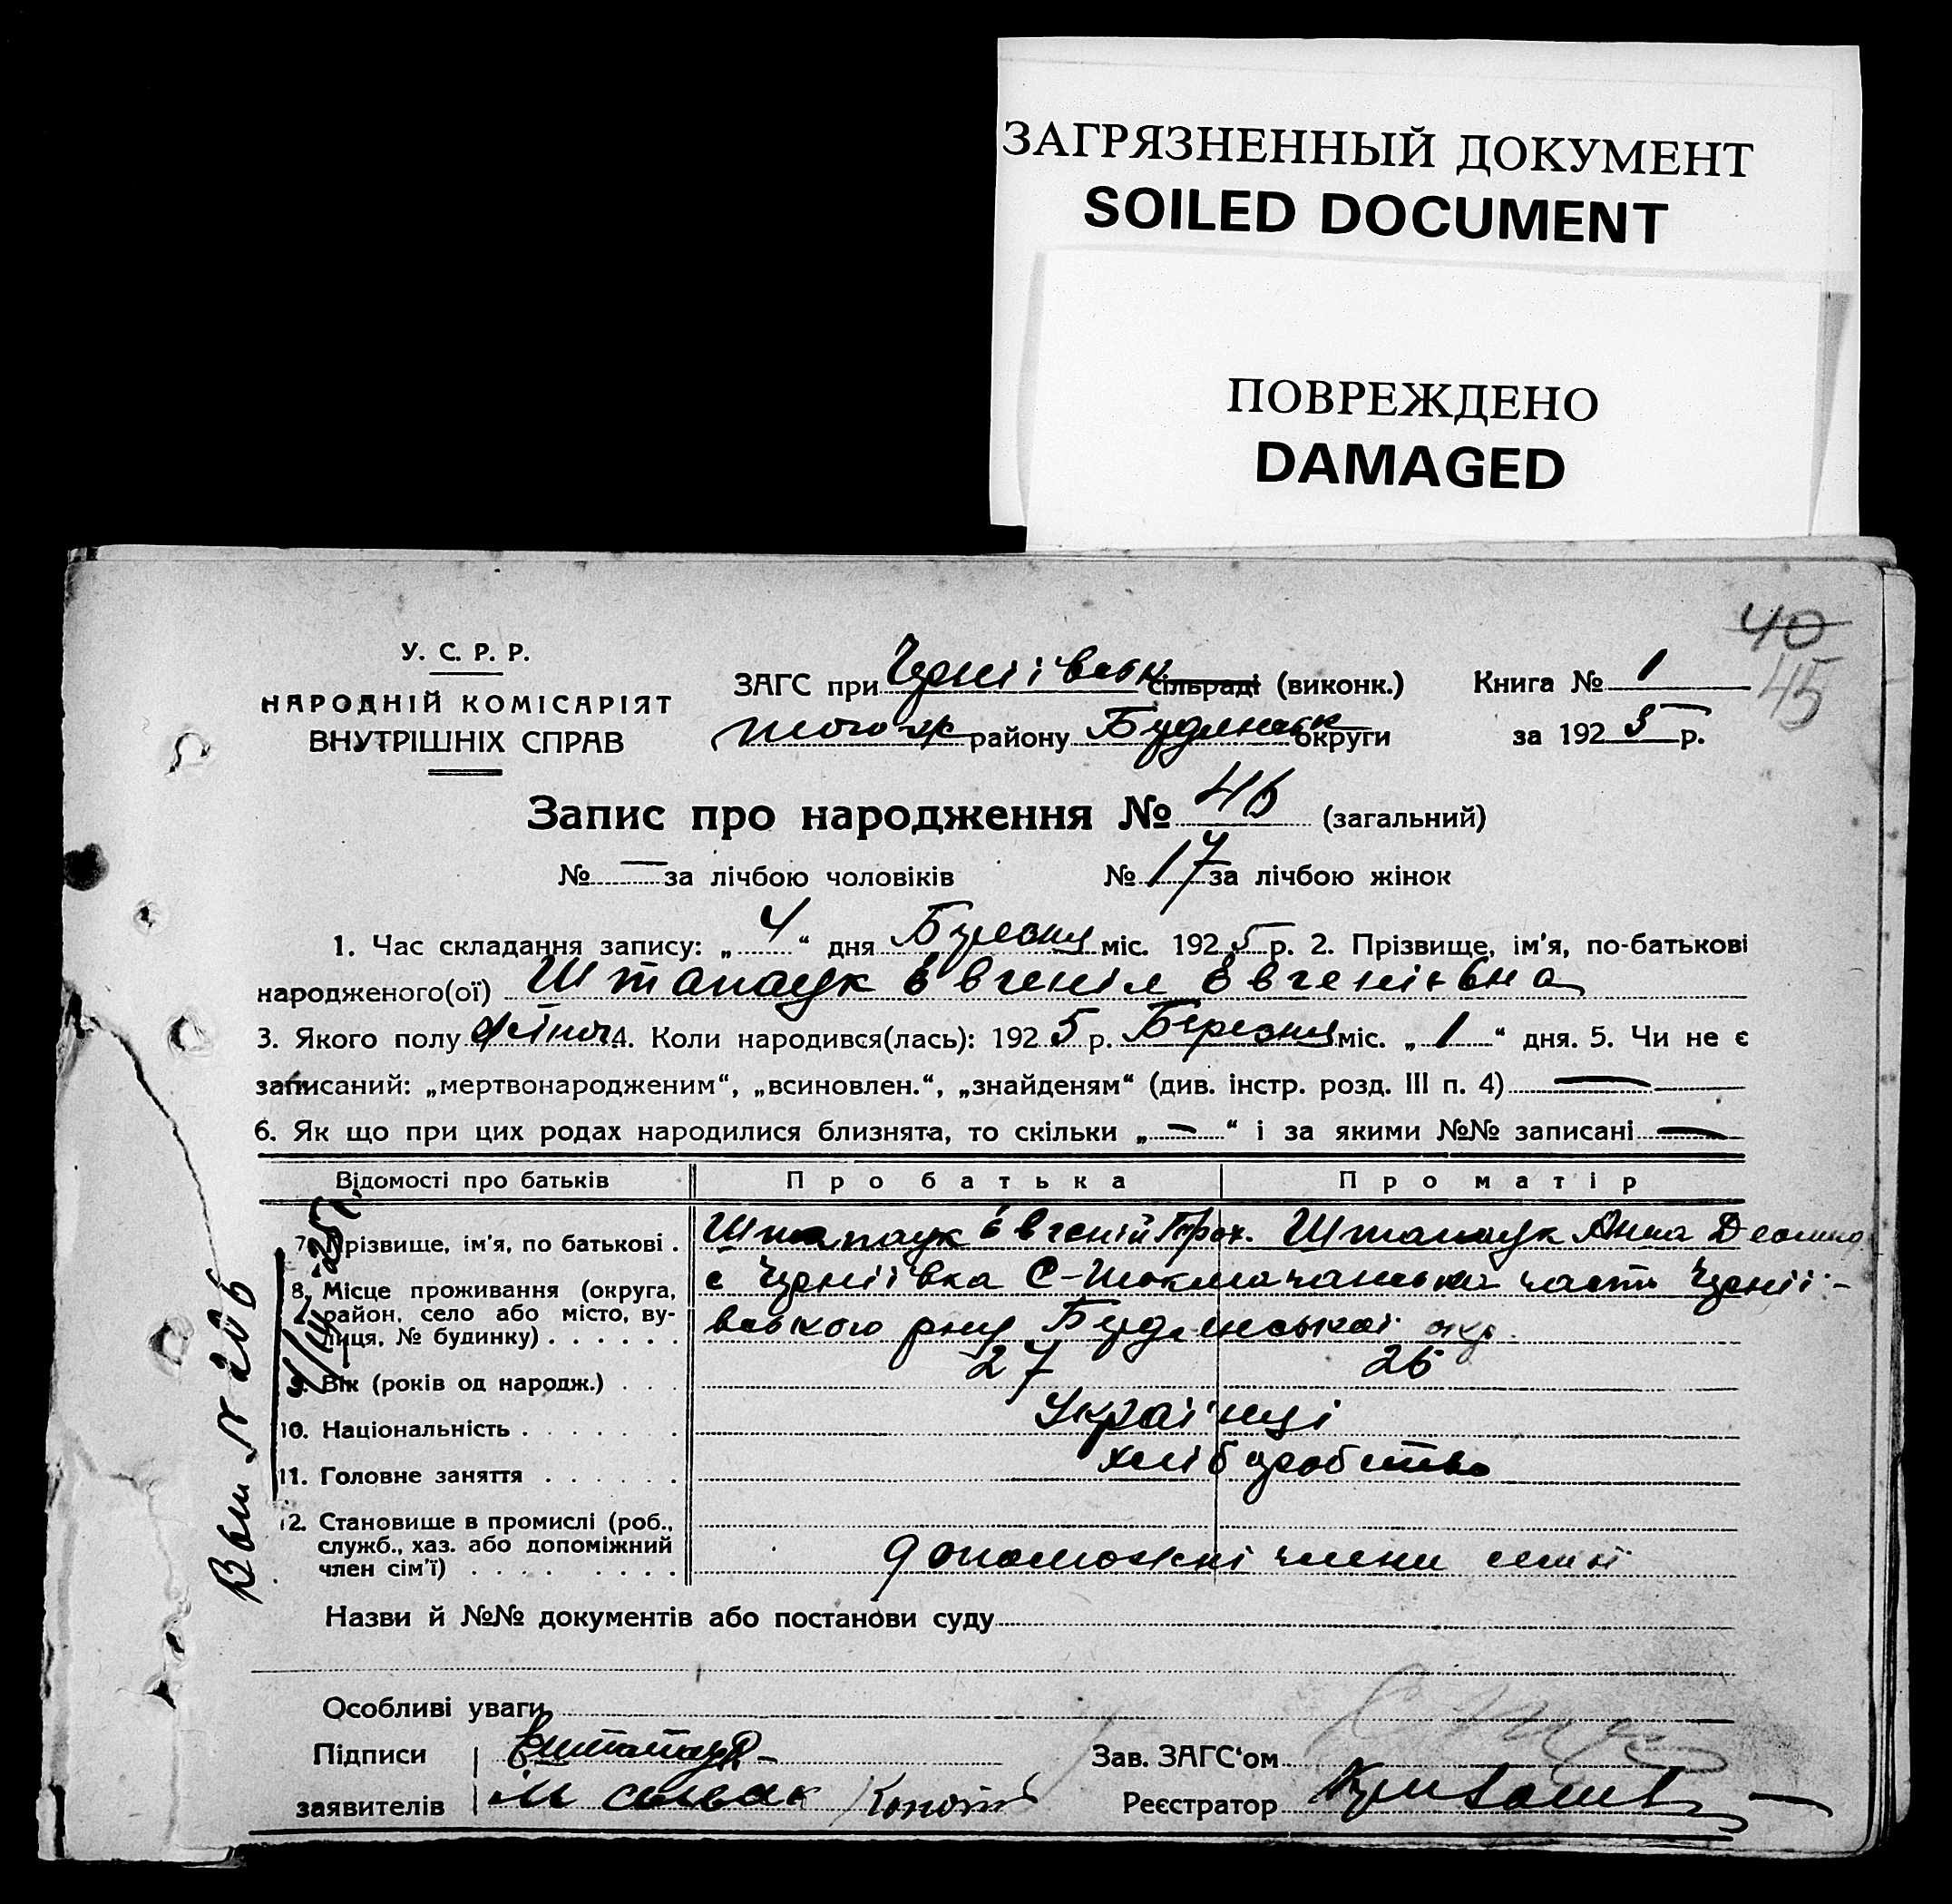 ЗАГРЯЗНЕННЫЙ ДОКУМЕНТ
SOILED DOCUMENT
ПОВРЕЖДЕНО
DAMAGED
40
45
У. С. Р. Р.
НАРОДНІЙ КОМІСАРІЯТ
ВНУТРІШНІХ СПРАВ
ЗАГС при сільраді (виконк.) Книга № 1
того ж району округи за 1925 р.
Запис про народження № 46 (загальний)
№ — за лічбою чоловіків № 17 за лічбою жінок
1. Час складання запису: „4“ дня Березня міс. 1925 р. 2. Прізвище, ім'я, по-батькові
народженого(ої) Штапаук Євгенія Євгеніевна
3. Якого полу жіноч 4. Коли народився(лась): 1925 р. Березня міс. „1“ дня. 5. Чи не є
записаний: „мертвонародженим“, „всиновлен.“, „знайденям“ (див. інстр. розд. III п. 4) —
6. Як що при цих родах народилися близнята, то скільки „—“ і за якими №№ записані —
Відомості про батьків Про батька Про матір
7. Прізвище, ім'я, по батькові . Штапаук Євгеній Прох. Штапаук Анна
8. Місце проживання (округа, район, село або місто, вулиця, № будинку) . . . . . . с часть
27 26
9. Вік (років од народж.) . . .
10. Національність . . . . . . . Українці
11. Головне заняття . . . . . . хліборобство
12. Становище в промислі (роб., служб., хаз. або допоміжний член сім'ї) . . . . . . . . допоможні члени
№ 206
Назви й №№ документів або постанови суду
Особливі уваги
Підписи Зав. ЗАГС'ом
заявителів Реєстратор